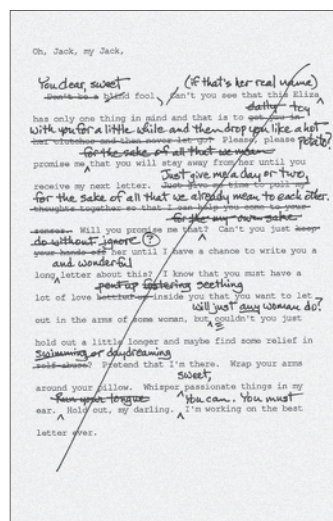 Oh, Jack, my Jack,
You dear, sweet (if that's her real name)
Don't be a blind fool, / Can't you see that this Eliza
dally toy
has only one thing in mind and that is to get you in
with you for a little while and then drop you like a hot
her clutches and then never let go? Please, please potato!
for the sake of all that we mean
promise me that you will stay away from her until you
Just give me a day or two,
receive my next letter. Just give me time to pull my
for the sake of all that we already mean to each other.
thoughts together so that I can help you come to your
for the my own sake
senses. Will you promise me that? Can't you just keep
do without ignore (?)
your hands off her until I have a chance to write you a
and wonderful
long letter about this? I know that you must have a
pent up festering seething
lot of love bottled up inside you that you want to let
will just any woman do?
out in the arms of some woman, but couldn't you just
hold out a little longer and maybe find some relief in
swimming or daydreaming
self-abuse? Pretend that I'm there. Wrap your arms
sweet,
around your pillow. Whisper passionate things in my
Run your tongue You can. You must
ear. Hold out, my darling. I'm working on the best
letter ever.